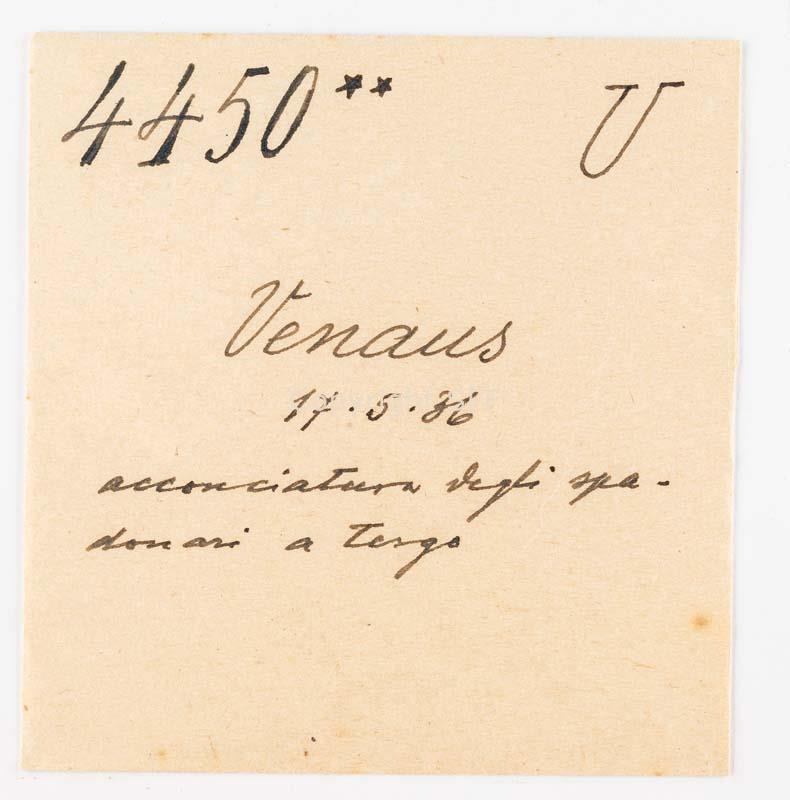 4450** U
Venaus
17.5.36
acconciatura degli spa-
donari a tergo